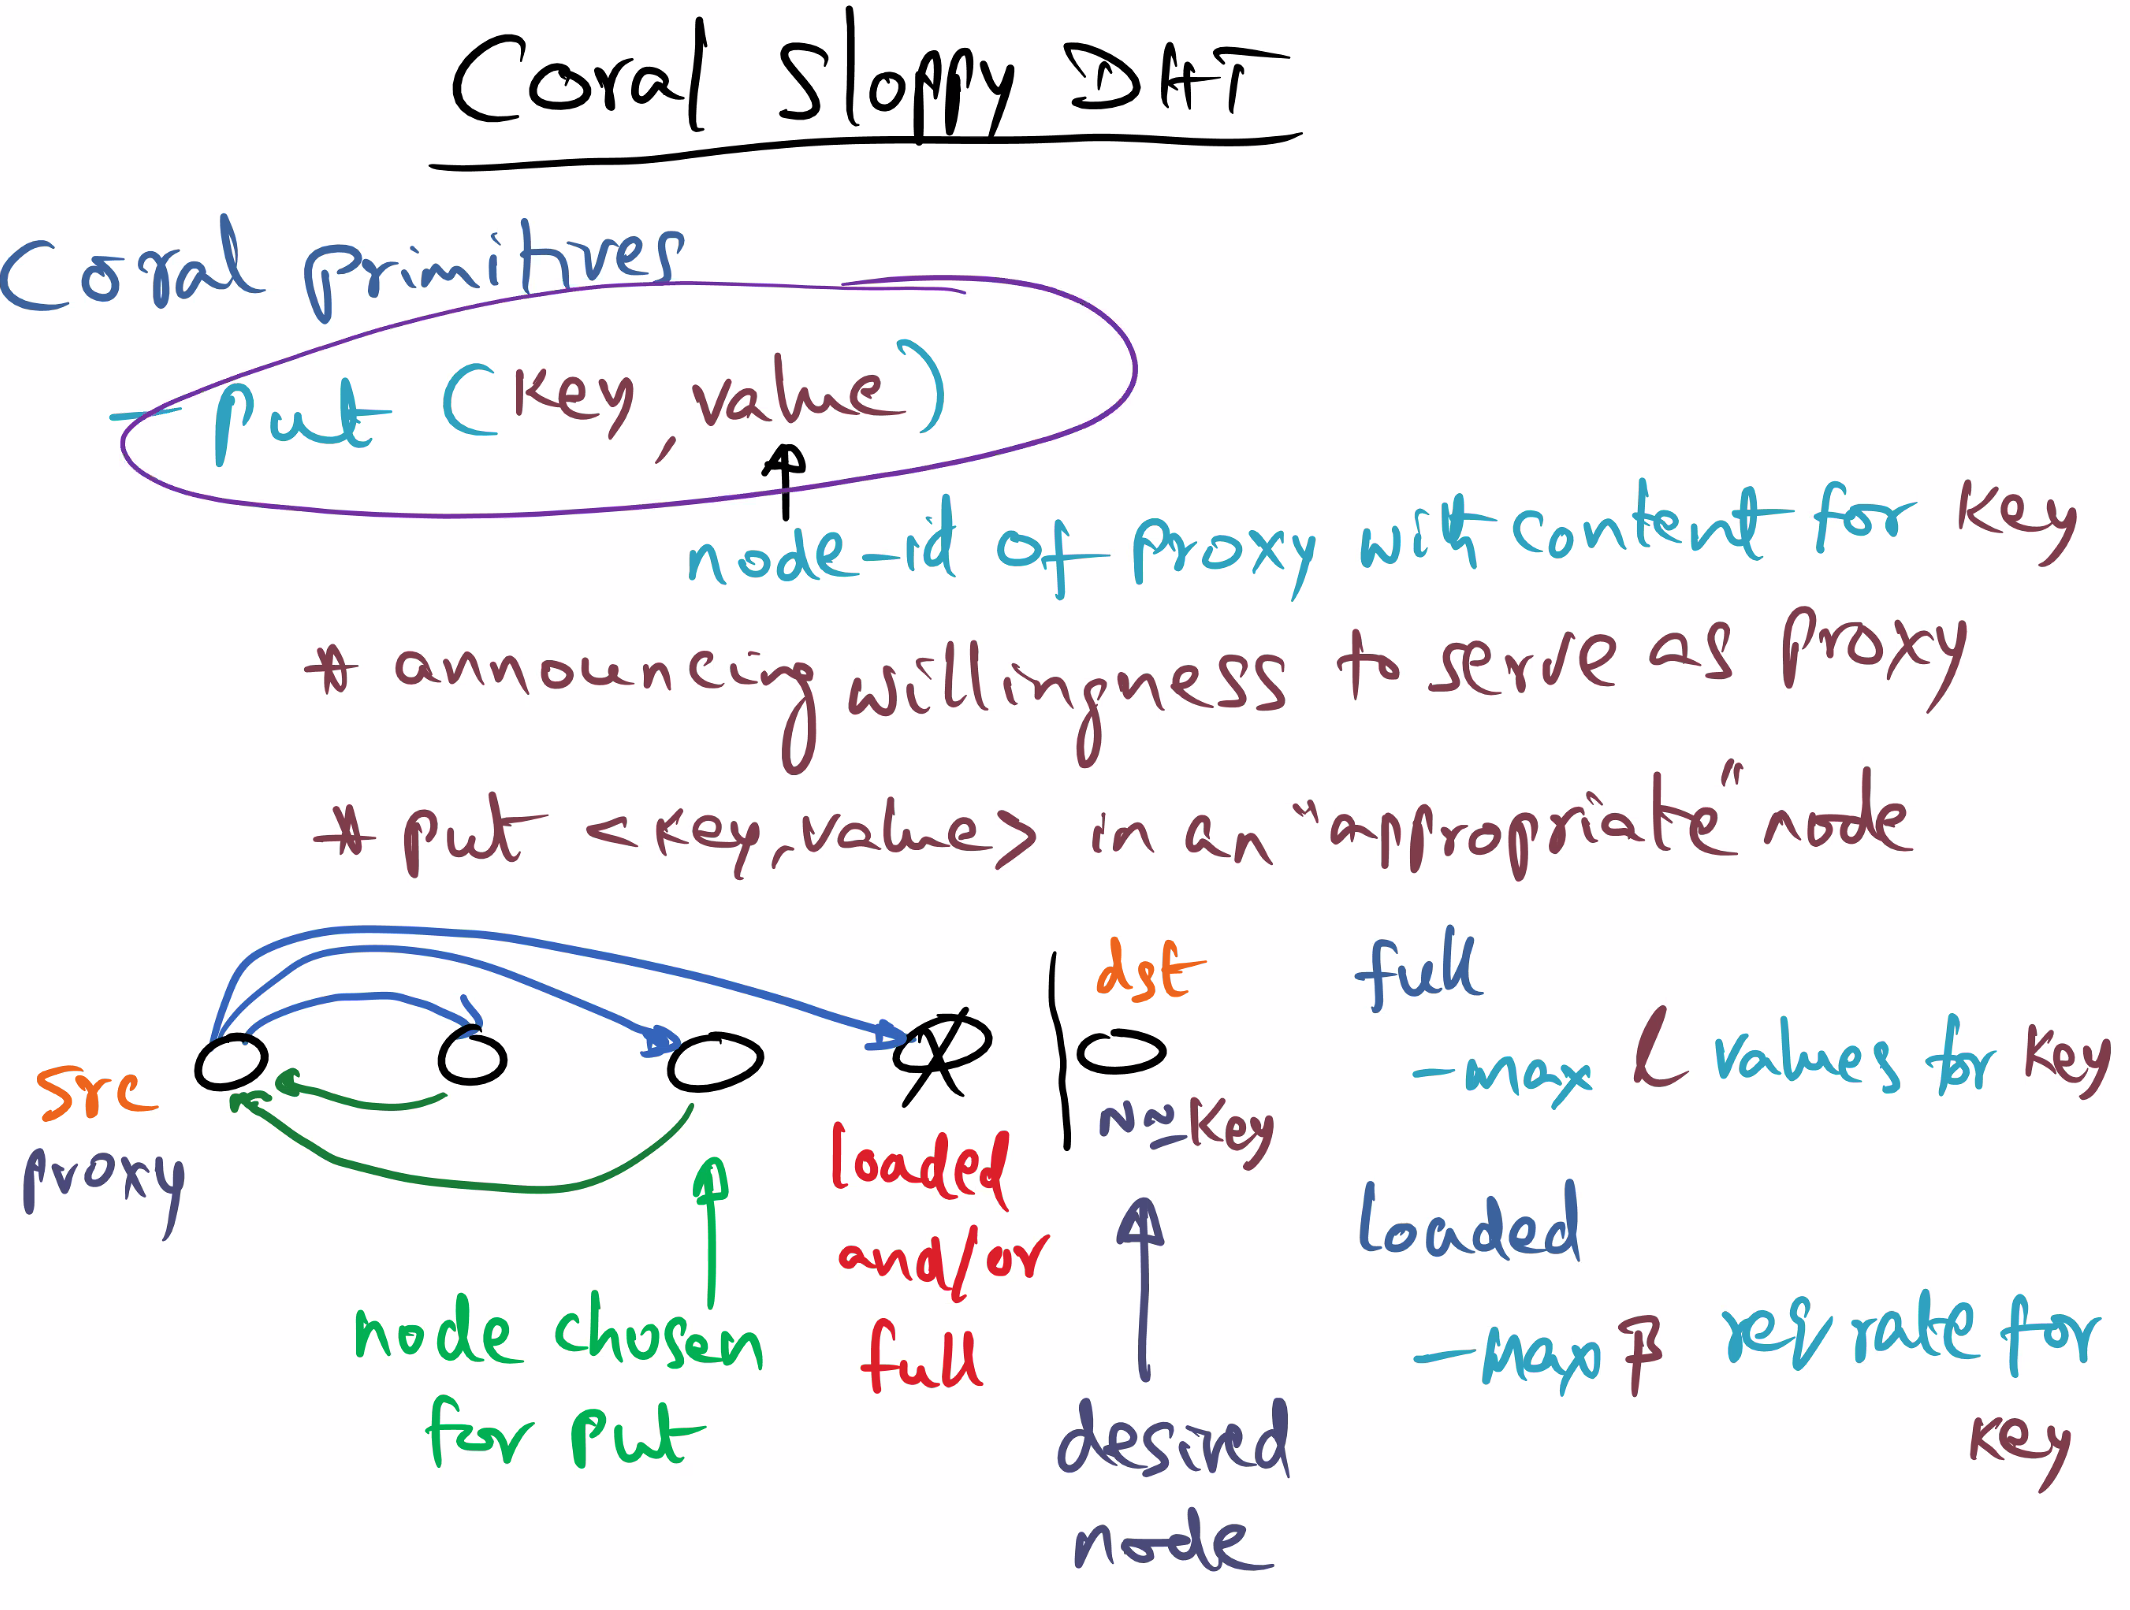 Coral Sloppy DHT
Coral primitives
- Put (Key, value)
node-id of proxy with content for Key
* announcing willingness to serve as Proxy
* put <key, value> in an "appropriate" node
src
proxy
node chosen
for put
loaded
and/or
full
dst
N ≈ Key
desired
node
full
- max l values for Key
loaded
- Max β req rate for
Key